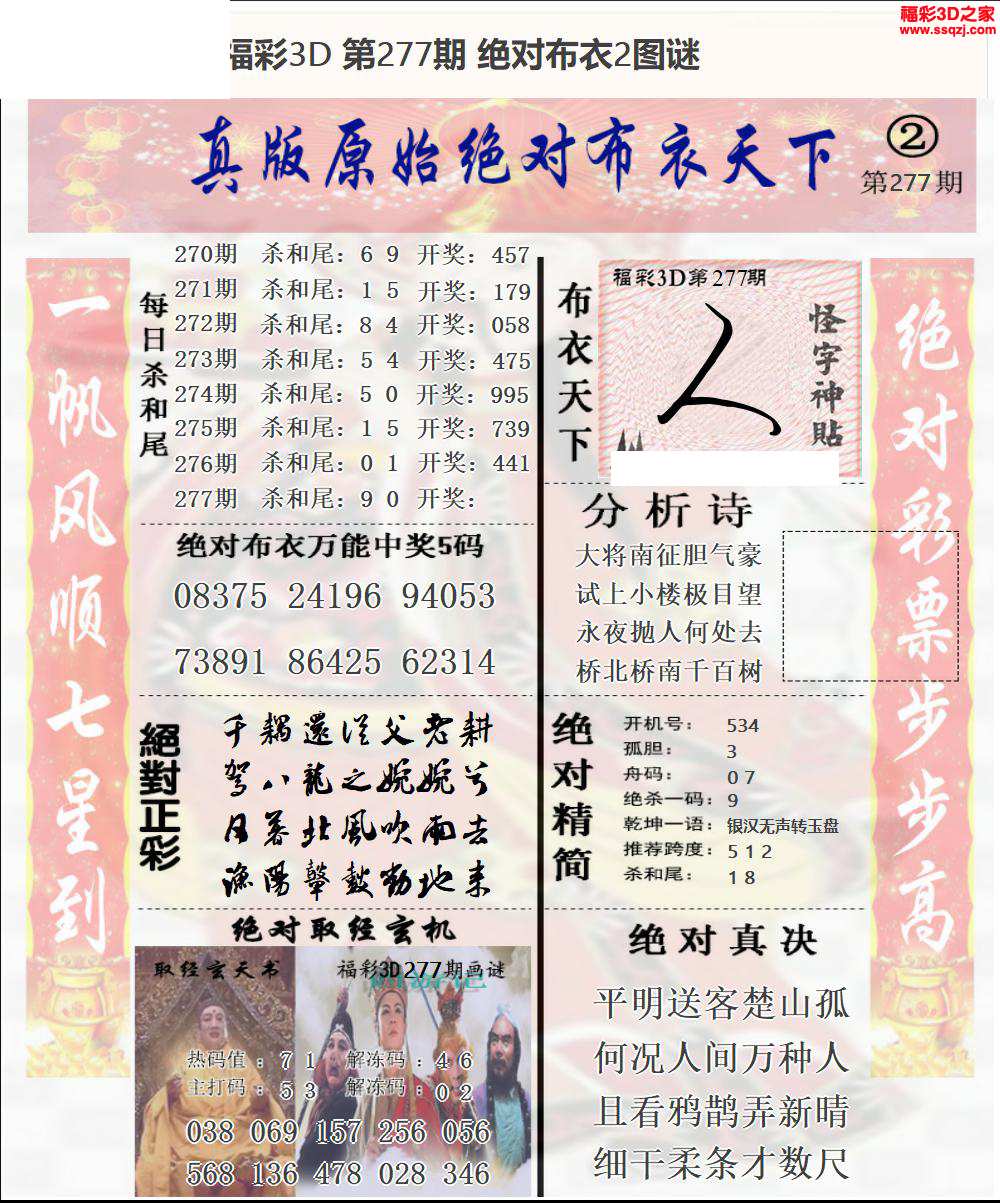 福彩3D之家
www.ssqzj.com
福彩3D 第277期 绝对布衣2图谜
真版原始绝对布衣天下
②
第277期
一帆风顺七星到
每日杀和尾
270期 杀和尾：6 9 开奖：457
271期 杀和尾：1 5 开奖：179
272期 杀和尾：8 4 开奖：058
273期 杀和尾：5 4 开奖：475
274期 杀和尾：5 0 开奖：995
275期 杀和尾：1 5 开奖：739
276期 杀和尾：0 1 开奖：441
277期 杀和尾：9 0 开奖：
绝对布衣万能中奖5码
08375 24196 94053
73891 86425 62314
絕對正彩
千耦還從父老耕
駕八龍之婉婉兮
日暮北風吹雨去
漁陽鼙鼓動地来
绝对取经玄机
取经玄天书
福彩3D277期画谜
热码值：7 1 解冻码：4 6
主打码：5 3 解冻码：0 2
038 069 157 256 056
568 136 478 028 346
布衣天下
福彩3D第277期
怪字神貼
分析诗
大将南征胆气豪
试上小楼极目望
永夜抛人何处去
桥北桥南千百树
绝对精简
开机号： 534
孤胆： 3
舟码： 0 7
绝杀一码：9
乾坤一语：银汉无声转玉盘
推荐跨度：5 1 2
杀和尾： 1 8
绝对真决
平明送客楚山孤
何况人间万种人
且看鸦鹊弄新晴
细干柔条才数尺
绝对彩票步步高